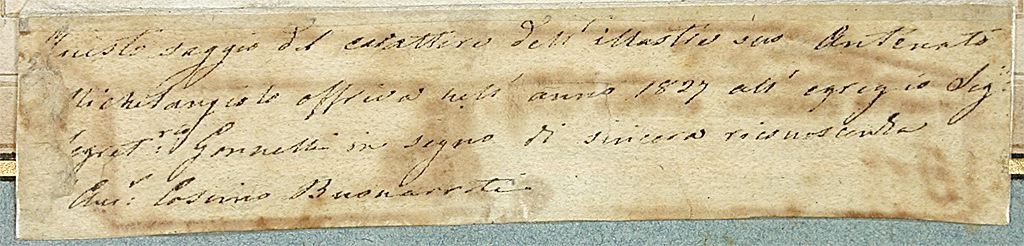 Questo saggio del carattere dell' illustre suo Antenato
Michelangiolo offriva nell' anno 1827 all' egregio Sig:
Segret:rio Gonnelli in segno di sincera riconoscenza
Cosimo Buonarroti